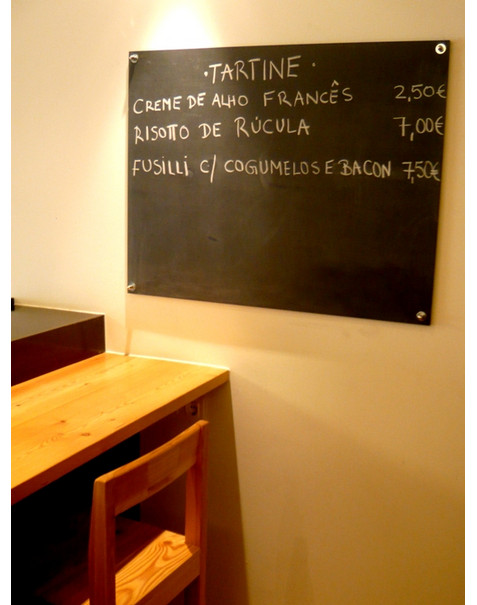 ·TARTINE·
CREME DE ALHO FRANCÊS 2,50€
RISOTTO DE RÚCULA 7,00€
FUSILLI C/ COGUMELOS E BACON 7,50€